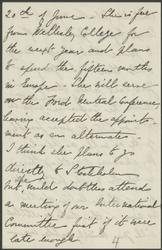 20th of June. She is free
from Wellesley College for
the next year and plans
to spend the fifteen months
in Europe. She will serve
on the Ford Neutral Conference
having accepted the appoint-
ment as an alternate.
I think she plans to go
directly to Stockholm
but, will doubtless attend
a meeting of our International
Committee first if it were
late enough
4